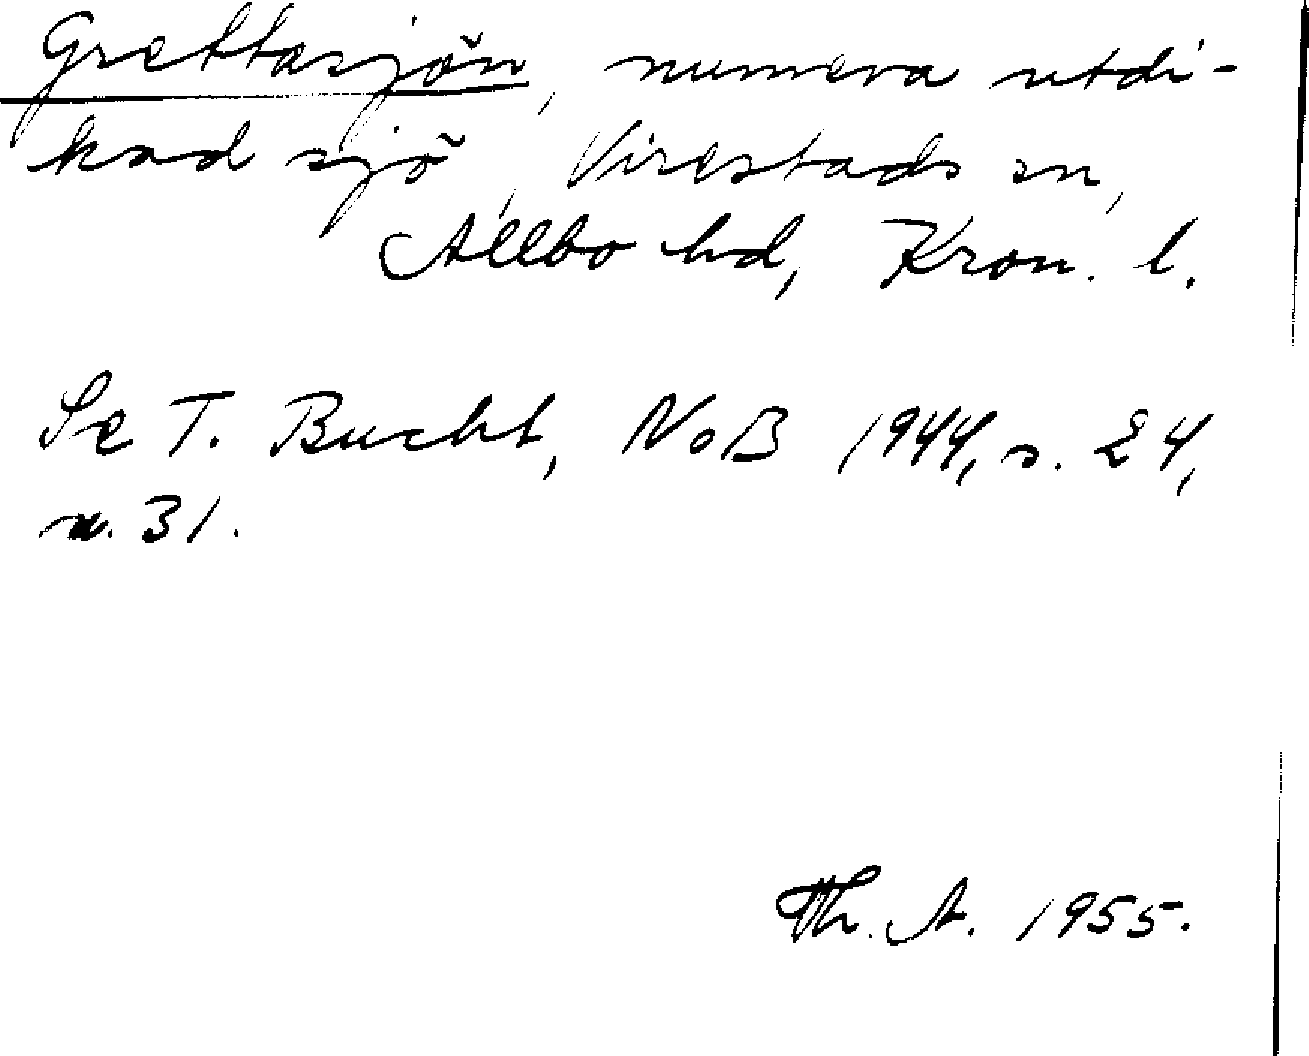 Grettasjön, numera utdi-
kad sjö, Virestads sn,
Allbo hd, Kron. l.
Se T. Bucht, NoB 1944, s. 24,
n. 31.
Th. A. 1955.